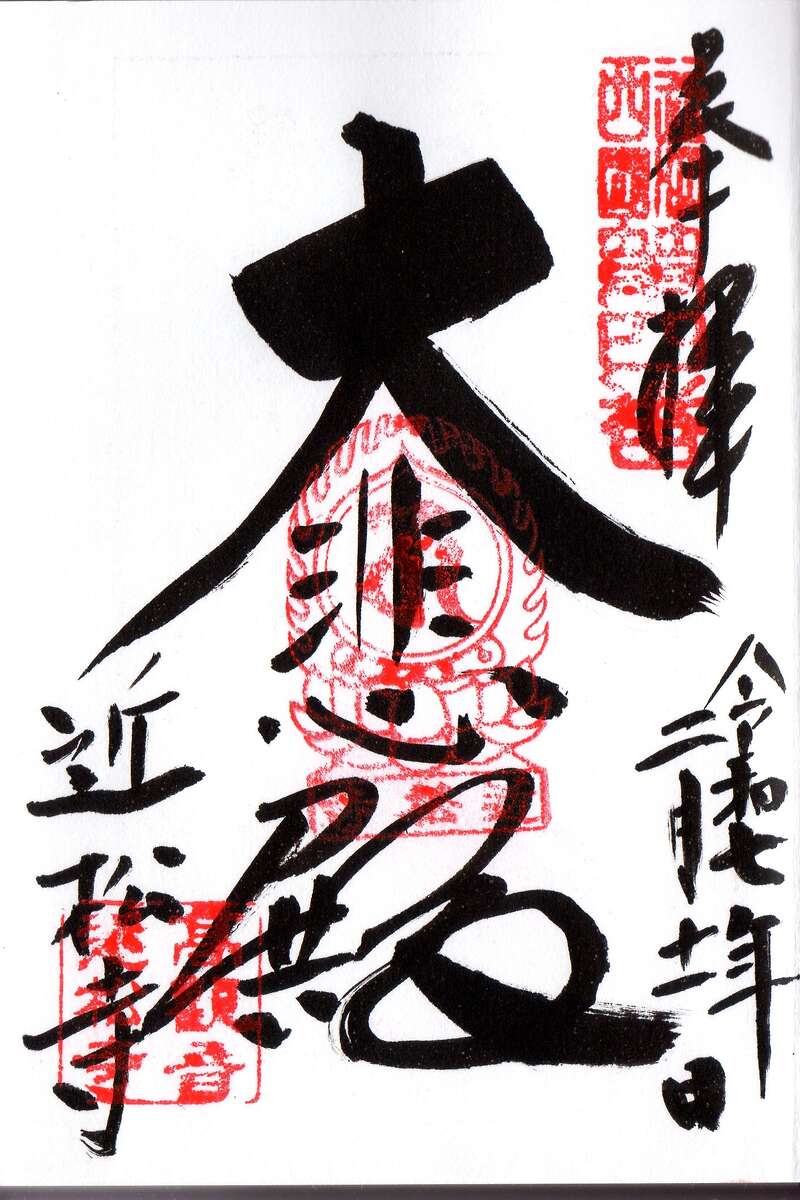 奉拝
令和七年
二月十二日
大悲殿
近松寺
高観音
近松寺